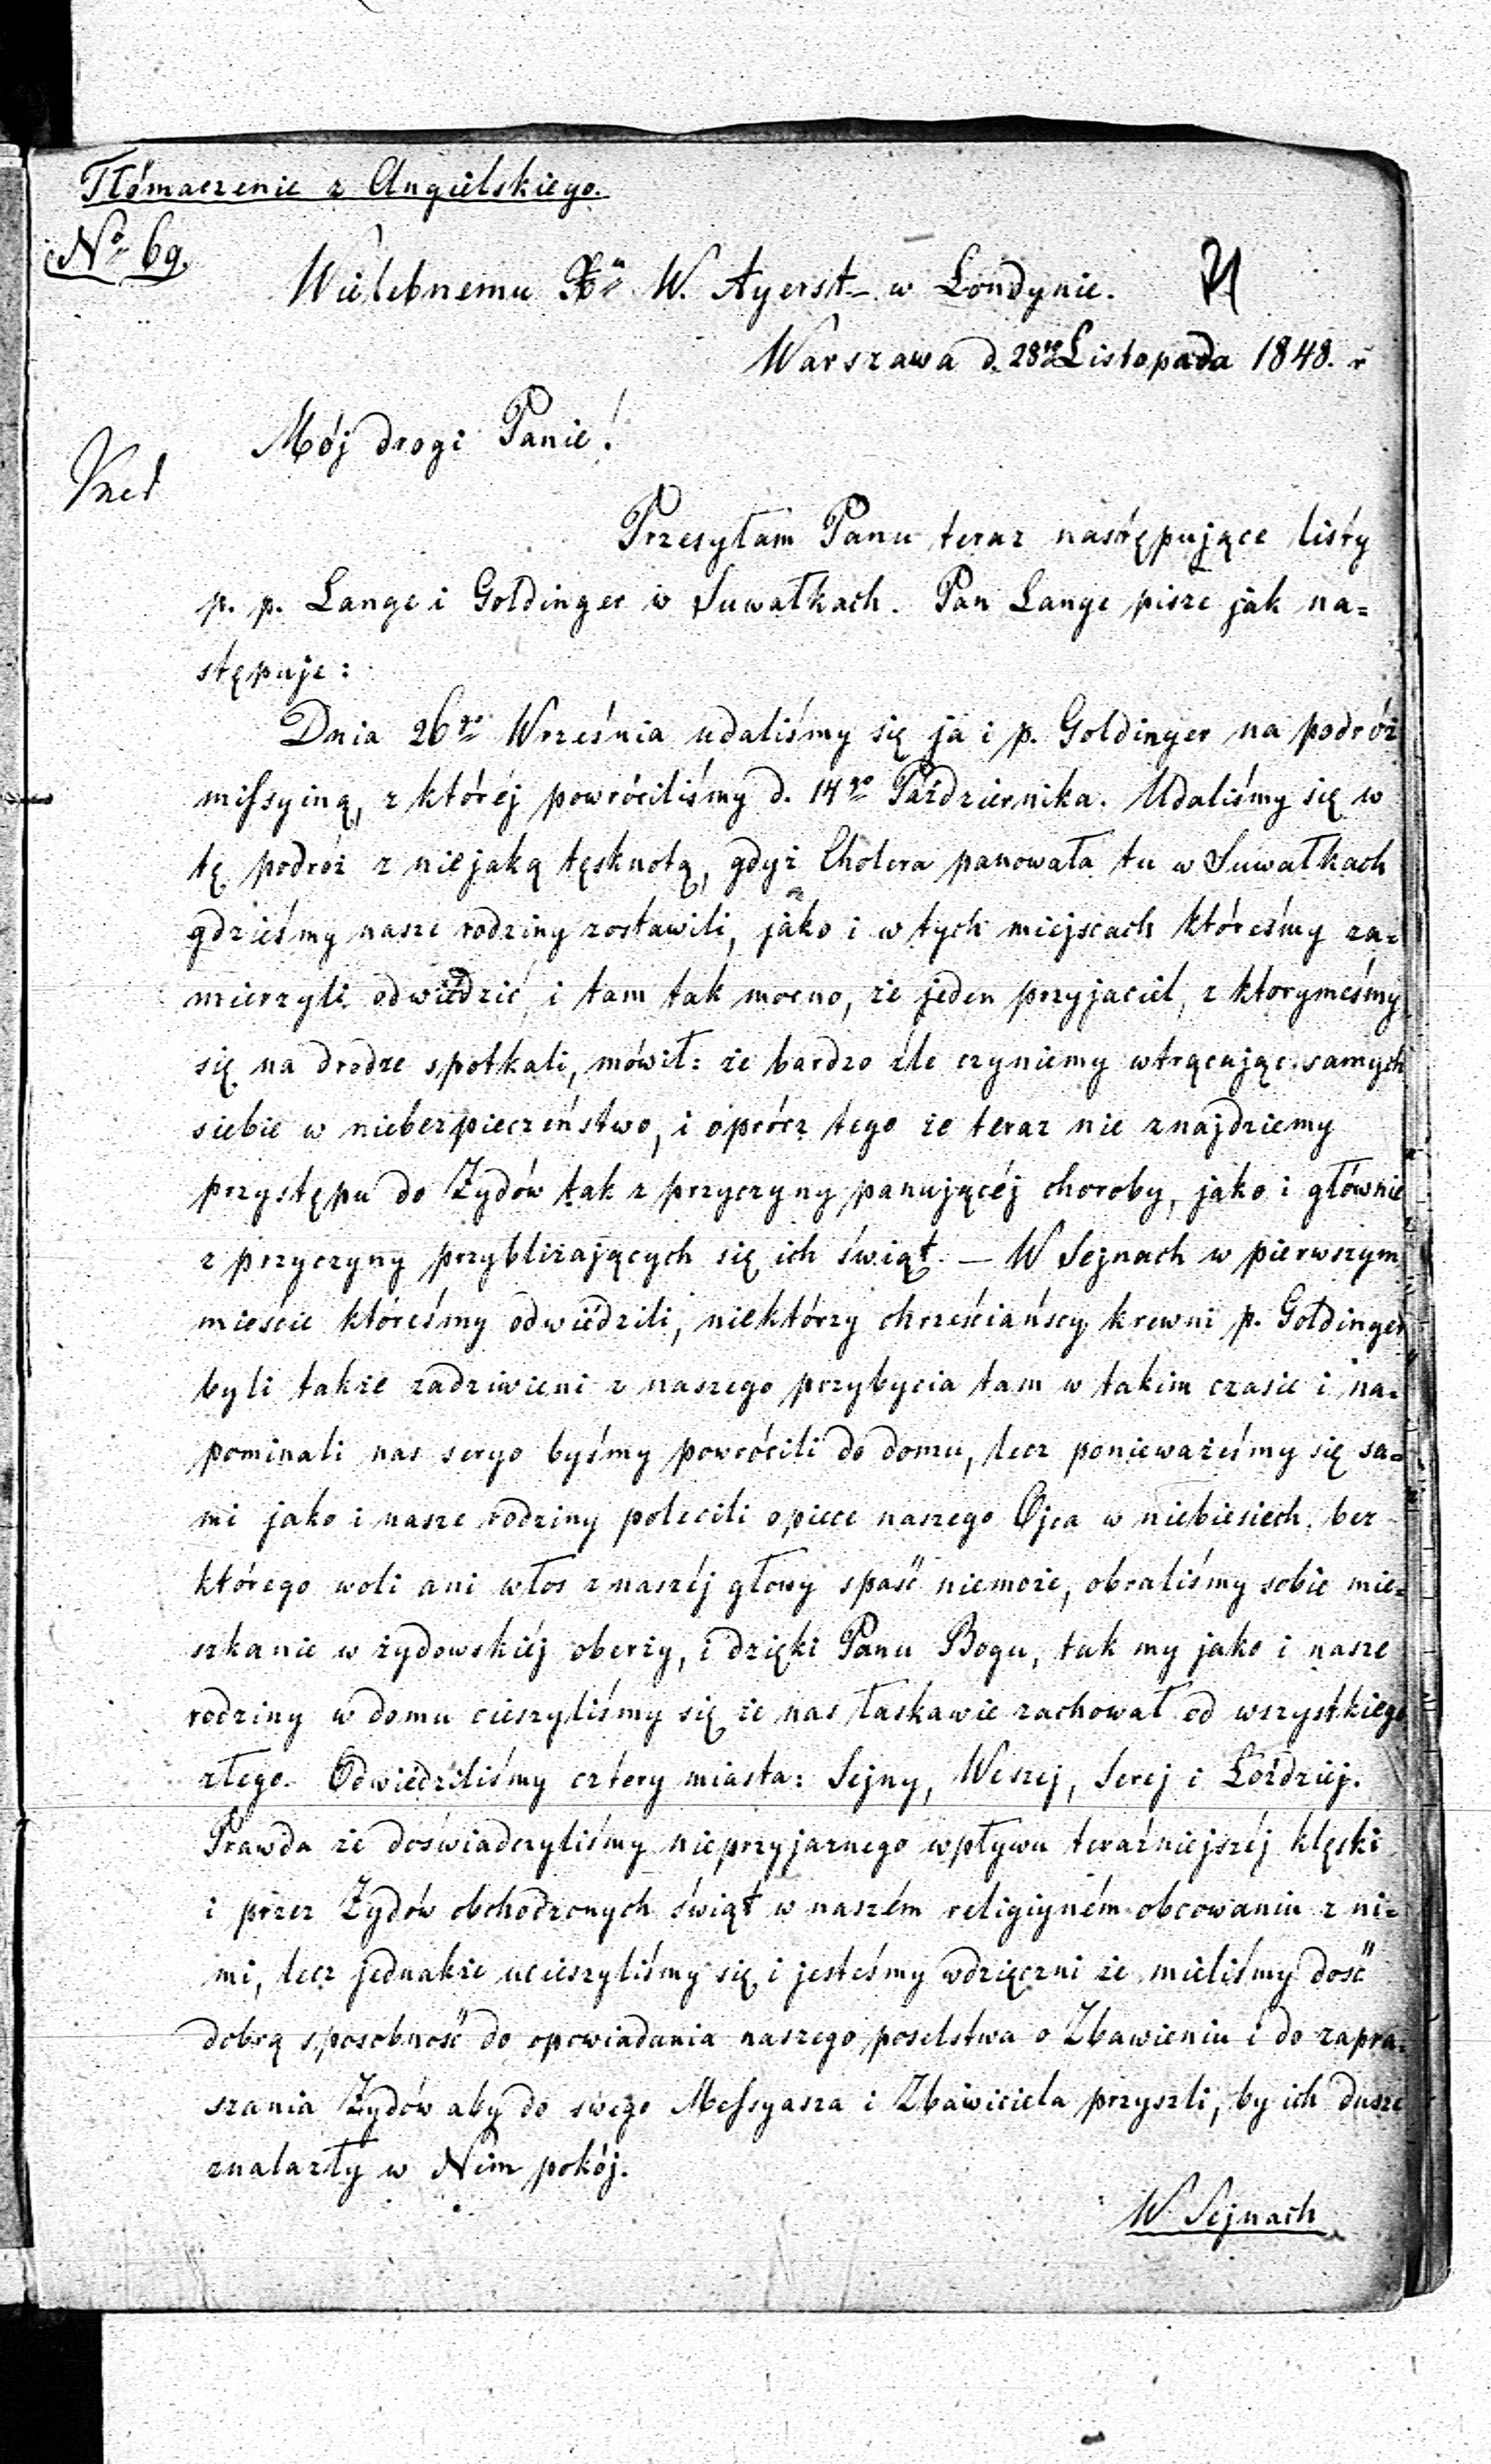 Tłómaczenie z Angielskiego.
No 69.
Wielebnemu Xu W. Ayerst w Londynie.
Warszawa d. 28go Listopada 1848. r
Mój drogi Panie!
Przesyłam Panu teraz następujące listy
p. p. Lange i Goldinger w Suwałkach. Pan Lange pisze jak na=
stępuje:
Dnia 26go Września udaliśmy się ja i p. Goldinger na podróż
missyiną, z któréj powróciliśmy d. 14go Października. Udaliśmy się w
tę podróż z niejaką tęsknotą, gdyż Cholera panowała tu w Suwałkach
gdzieśmy nasze rodziny zostawili, jako i w tych miejscach któreśmy za=
mierzyli odwiédzić i tam tak mocno, że jeden przyjaciel, z ktorymeśmy
się na drodze spotkali, mówił: że bardzo źle czyniemy wtrącając samych
siebie w niebezpieczeństwo, i oprócz tego że teraz nie znajdziemy
przystępu do Żydów tak z przyczyny panującéj choroby, jako i głównie
z przyczyny przybliżających się ich świąt. — W Sejnach w pierwszym
mieście któreśmy odwiédzili, niektórzy chrześciańscy krewni p. Goldinger
byli także zadziwieni z naszego przybycia tam w takim czasie i na=
pominali nas seryo byśmy powrócili do domu, lecz ponieważeśmy się sa=
mi jako i nasze rodziny polecili opiece naszego Ojca w niebiesiech, bez
którego woli ani włos z naszéj głowy spaść niemoże, obraliśmy sobie mie=
szkanie w żydowskiéj oberży, i dzięki Panu Bogu, tak my jako i nasze
rodziny w domu cieszyliśmy się że nas łaskawie zachował od wszystkiego
złego. Odwiédziliśmy cztery miasta: Sejny, Weszej, Serej i Łoździej.
Prawda że doświadczyliśmy nieprzyjaznego wpływu teraźniejszéj klęski
i przez Żydów obchodzonych świąt w naszém religijném obcowaniu z ni=
mi, lecz jednakże ucieszyliśmy się i jesteśmy wdzięczni że mieliśmy dość
dobrą sposobność do opowiadania naszego poselstwa o Zbawieniu i do zapra=
szania Żydów aby do swego Messyasza i Zbawiciela przyszli, by ich dusze
znalazły w Nim pokój.
W Sejnach